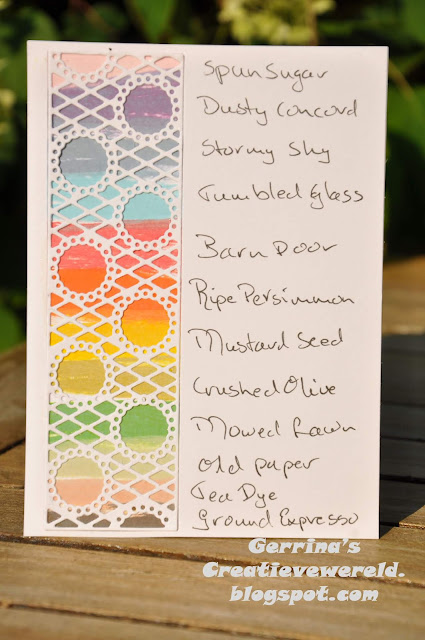 Spun Sugar
Dusty Concord
Stormy Sky
Tumbled Glass
Barn Door
Ripe Persimmon
Mustard Seed
Crushed Olive
Mowed Lawn
old paper
Tea Dye
Ground Expresso
Gerrina's
Creatievewereld.
blogspot.com